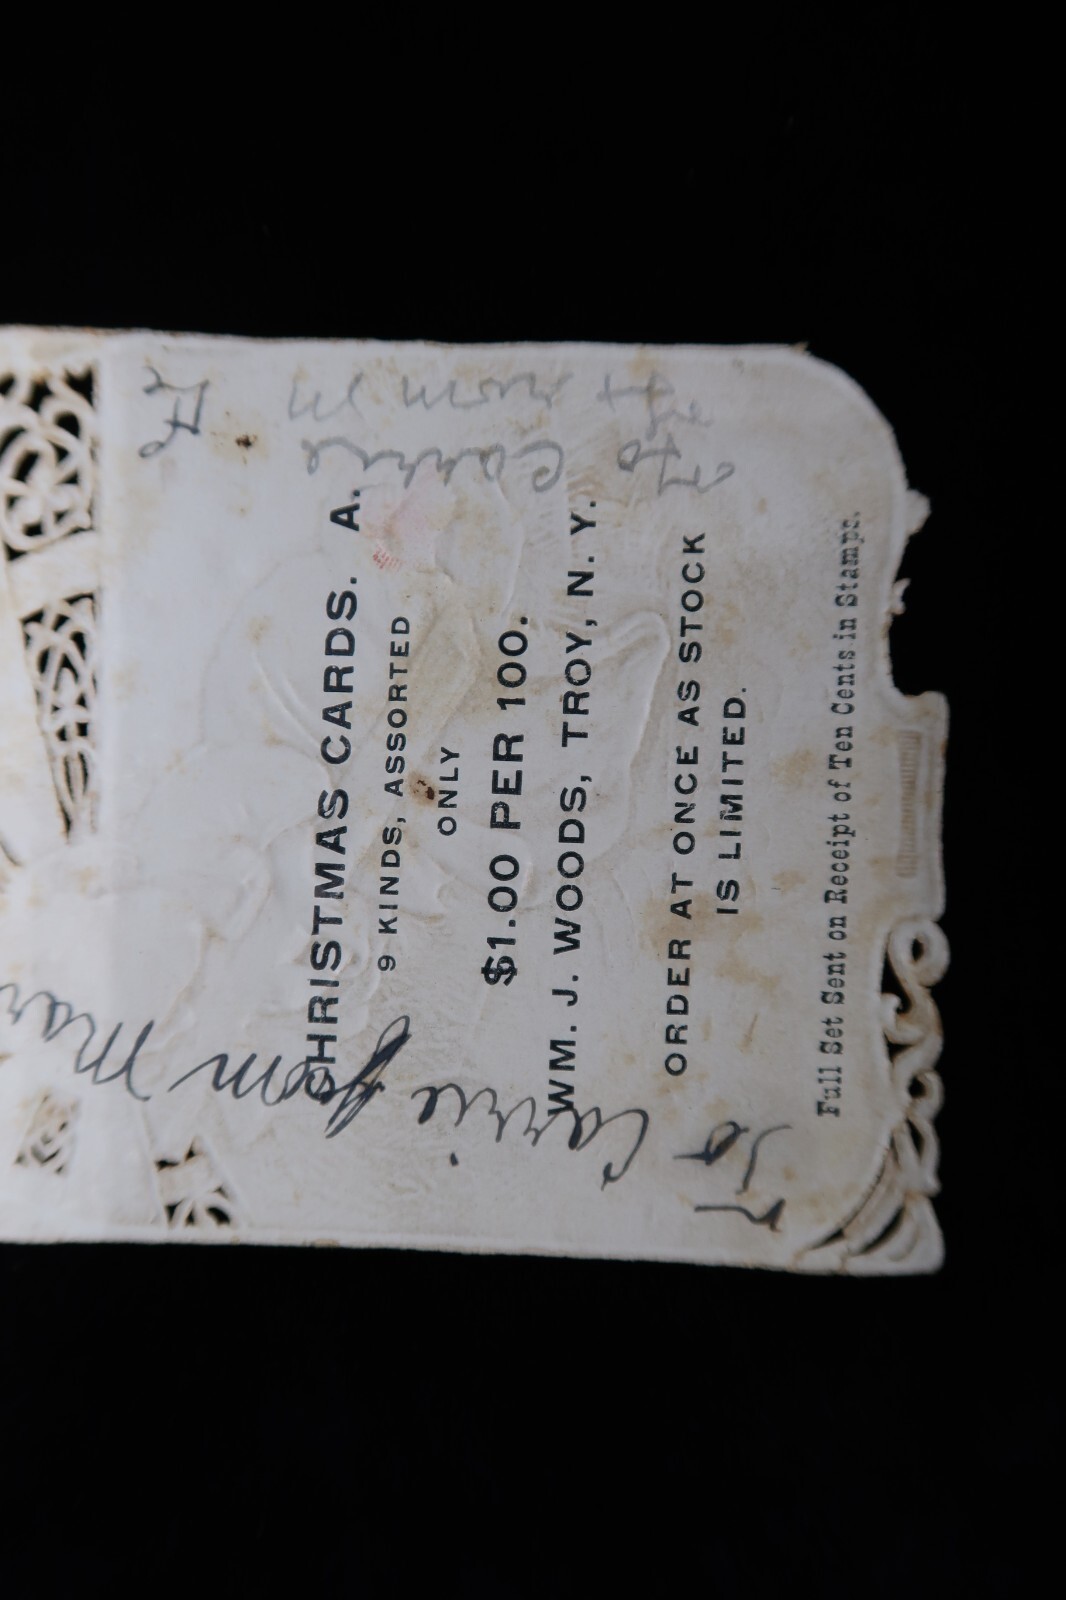 CHRISTMAS CARDS. A.
9 KINDS, ASSORTED
ONLY
$1.00 PER 100.
WM. J. WOODS, TROY, N. Y.
ORDER AT ONCE AS STOCK
IS LIMITED.
Full Set Sent on Receipt of Ten Cents in Stamps.
To Carrie from Mar
To Carrie